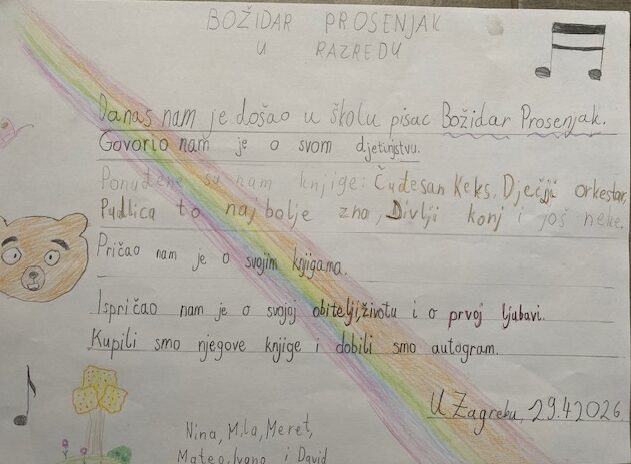 BOŽIDAR PROSENJAK
U RAZREDU
Danas nam je došao u školu pisac Božidar Prosenjak.
Govorio nam je o svom djetinjstvu.
Ponuđene su nam knjige: Čudesan Keks, Dječji orkestar,
Pudlica to najbolje zna, Divlji konj i još neke.
Pričao nam je o svojim knjigama.
Ispričao nam je o svojoj obitelji, životu i o prvoj ljubavi.
Kupili smo njegove knjige i dobili smo autogram.
U Zagrebu, 29.4.2026.
Nina, Mila, Meret,
Mateo, Ivano i David